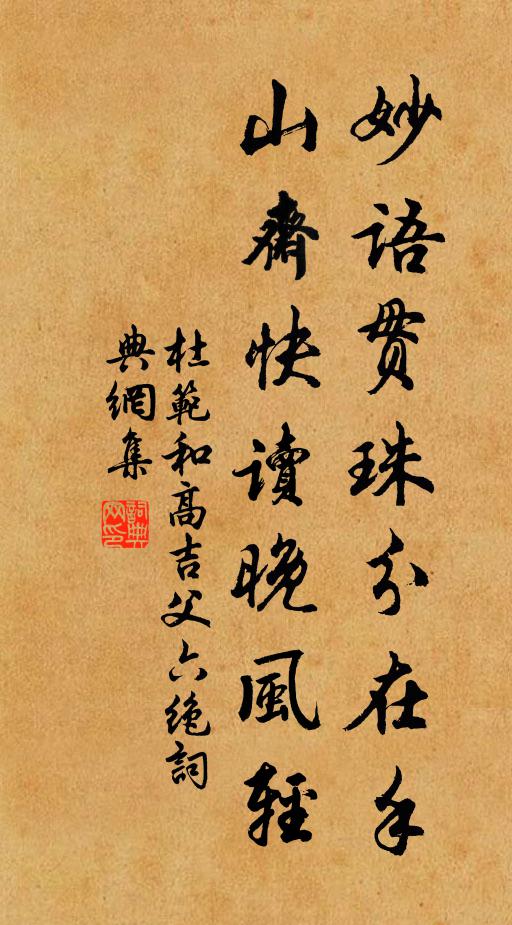 妙語貫珠分在手
山齋快讀晚風輕
杜範和高吉父六絕詞
典網集
詞典網印